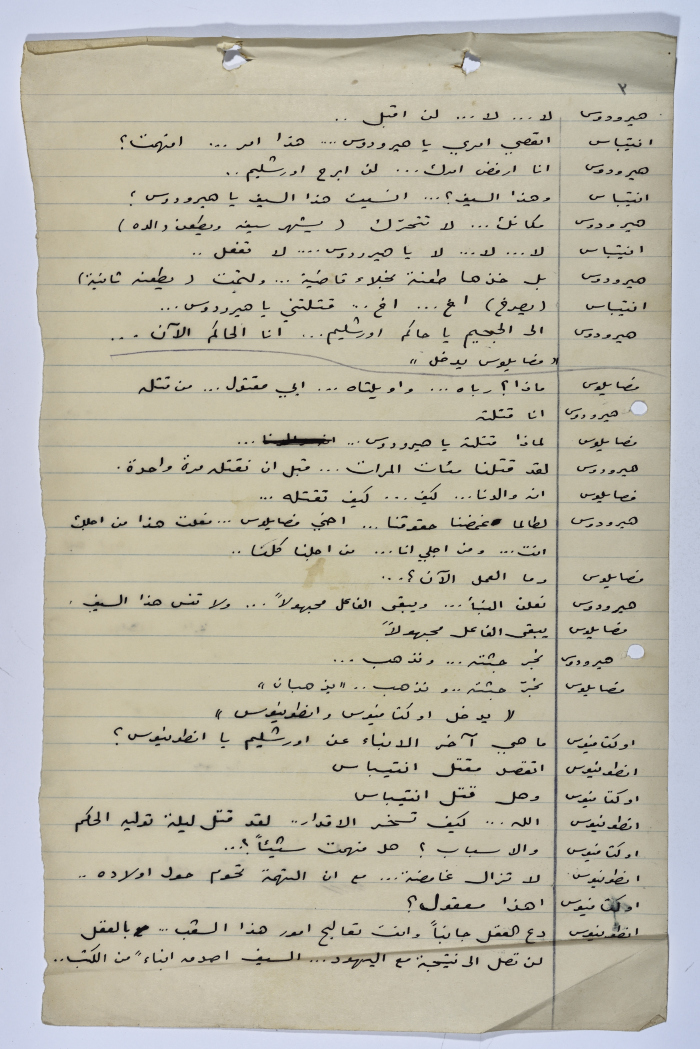 ٢
هيرودوس لا... لا... لن اقبل ..
انتيباس اتقصي امري يا هيرودوس.... هذا امر ... افهمت؟
هيرودوس انا ارفض امرك... لن ابرح اورشليم ..
انتيباس وهذا السيف؟... انسيت هذا السيف يا هيرودوس ؟
هيرودوس مكانك... لا تتحرك ( يشهر سيفه ويطعن والده )
انتيباس لا... لا... لا يا هيرودوس.... لا تفعل ..
هيرودوس بل خذها طعنة نجلاء قاضية ... ولتمت ( يطعنه ثانية )
انتيباس (يصرخ) اخ... اخ... قتلتني يا هيرودوس...
هيرودوس الى الجحيم يا حاكم اورشليم... انا الحاكم الآن ...
" فضايلوس يدخل "
فضايلوس ماذا؟ رباه... واويلتاه... ابي مقتول... من قتله
هيرودوس انا قتلته
فضايلوس لماذا قتلته يا هيرودوس... ...
هيرودوس لقد قتلنا مئات المرات... قبل ان نقتله مرة واحدة .
فضايلوس انه والدنا... كيف... كيف تقتله ...
هيرودوس لطالما غمضنا حقوقنا... اخي فضايلوس ... فعلت هذا من اجلك
انت... ومن اجلي انا... من اجلنا كلنا ..
فضايلوس وما العمل الآن ؟...
هيرودوس نعلن النبأ... ويبقى الفاعل مجهولاً... ولا تنس هذا السيف .
فضايلوس يبقى الفاعل مجهولاً
هيرودوس نجر جثته... ونذهب ...
فضايلوس نجرّ جثته... ونذهب .. "يذهبان"
" يدخل اوكتافيوس وانطونيوس "
اوكتافيوس ما هي آخر الانباء عن اورشليم يا انطونيوس؟
انطونيوس اتقصد مقتل انتيباس
اوكتافيوس وهل قتل انتيباس
انطونيوس الله... كيف تسخر الاقدار.. لقد قتل ليلة توليه الحكم
اوكتافيوس والاسباب ؟ هل فهمت شيئاً ؟..
انطونيوس لا تزال غامضة... مع ان التهمة تحوم حول اولاده ..
اوكتافيوس اهذا معقول؟
انطونيوس دع العقل جانباً وانت تعالج امور هذا الشعب... بالعقل
لن تصل الى نتيجة مع اليهود... السيف اصدق انباءً من الكتب..